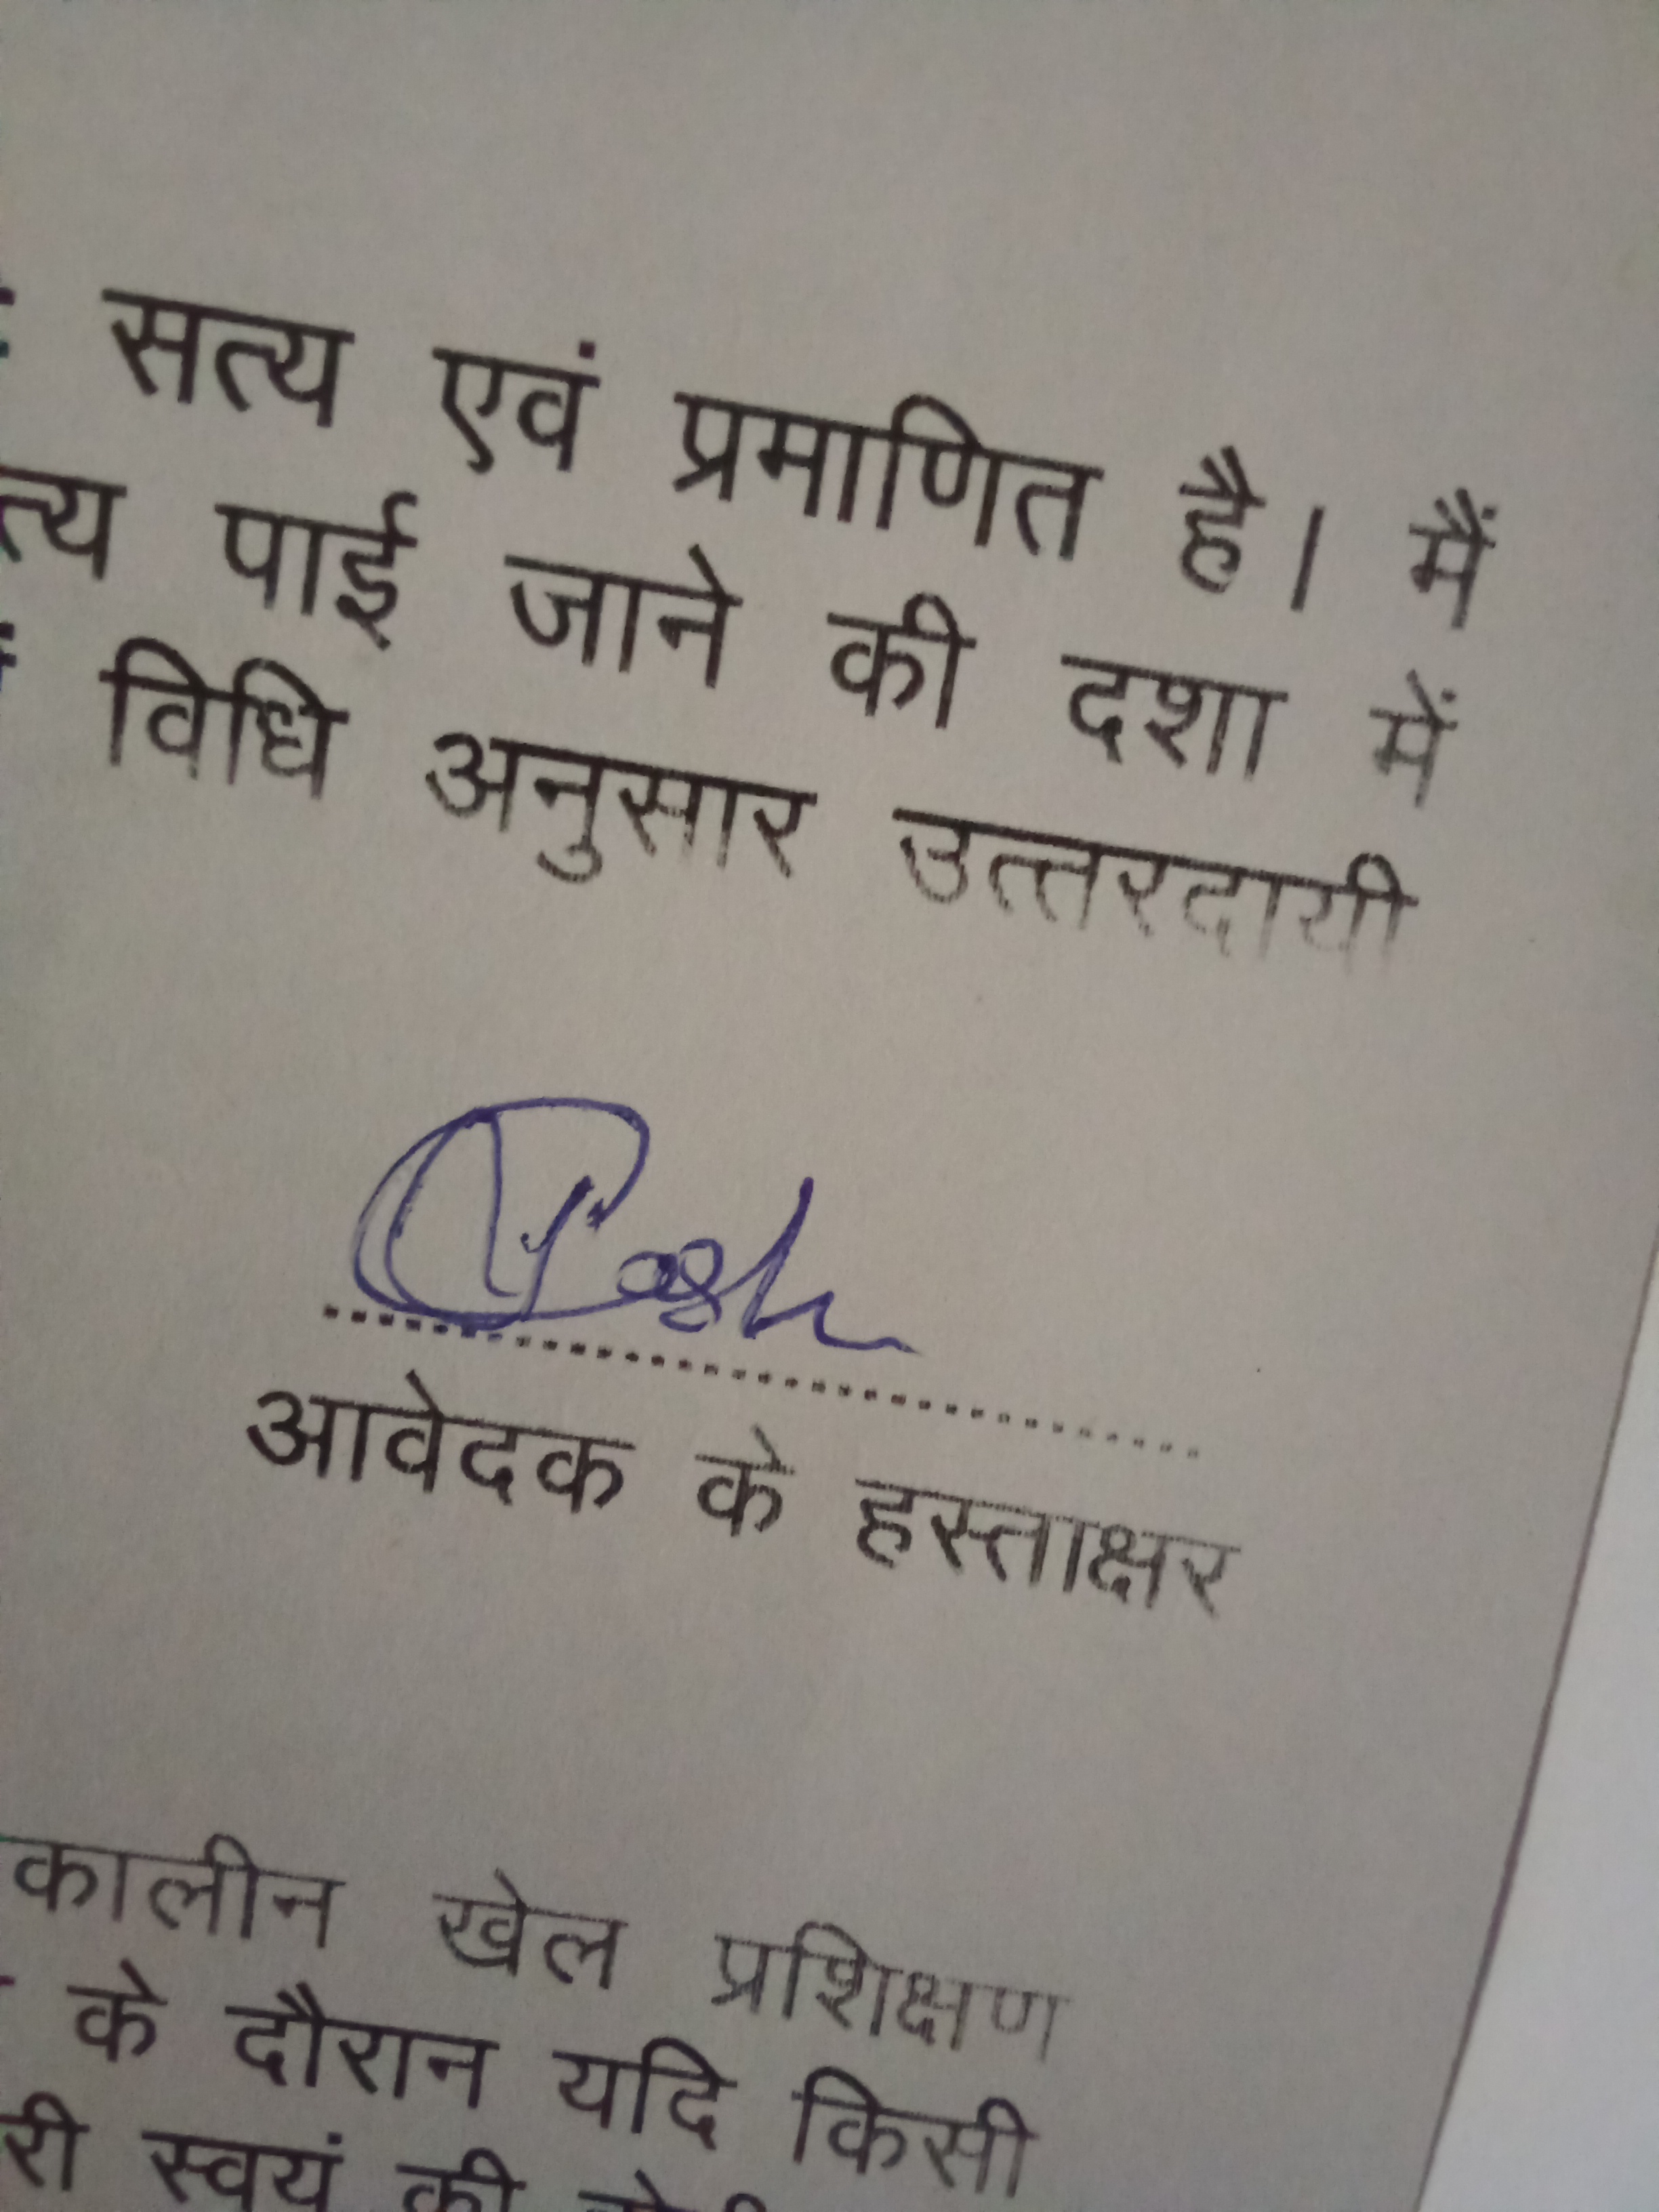 सत्य एवं प्रमाणित है। मैं
पाई जाने की दशा में
विधि अनुसार उत्तरदायी
आवेदक के हस्ताक्षर
कालीन खेल प्रशिक्षण
के दौरान यदि किसी
री स्वयं की